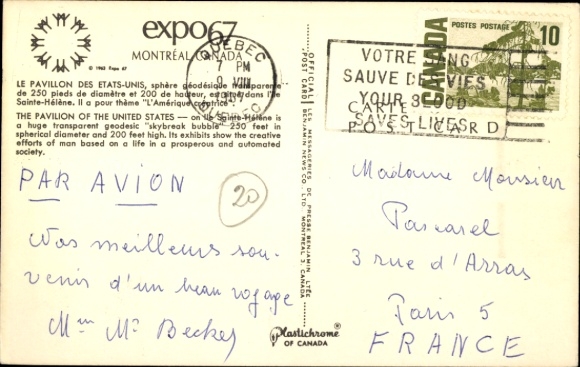 expo67
MONTRÉAL, CANADA
© 1963 Expo 67
LE PAVILLON DES ETATS-UNIS, sphère géodésique transparente
de 250 pieds de diamètre et 200 de hauteur, est situé dans l'île
Sainte-Hélène. Il a pour thème "L'Amérique créatrice".
THE PAVILION OF THE UNITED STATES — on Ile Sainte-Hélène is
a huge transparent geodesic "skybreak bubble" 250 feet in
spherical diameter and 200 feet high. Its exhibits show the creative
efforts of man based on a life in a prosperous and automated
society.
PAR AVION
20
Vos meilleurs sou-
venir d'un beau voyage
Mme Mr Becker
Plastichrome®
OF CANADA
OFFICIAL POST CARD
LES MESSAGERIES DE PRESSE BENJAMIN LTÉE
BENJAMIN NEWS CO. LTD MONTREAL 3, CANADA
QUEBEC
7 PM
9 VIII
POSTES POSTAGE
10
CANADA
VOTRE SANG
SAUVE DES VIES
YOUR BLOOD
SAVES LIVES
CARTE
POST CARD
Madame Monsieur
Pascarel
3 rue d'Arras
Paris 5
FRANCE